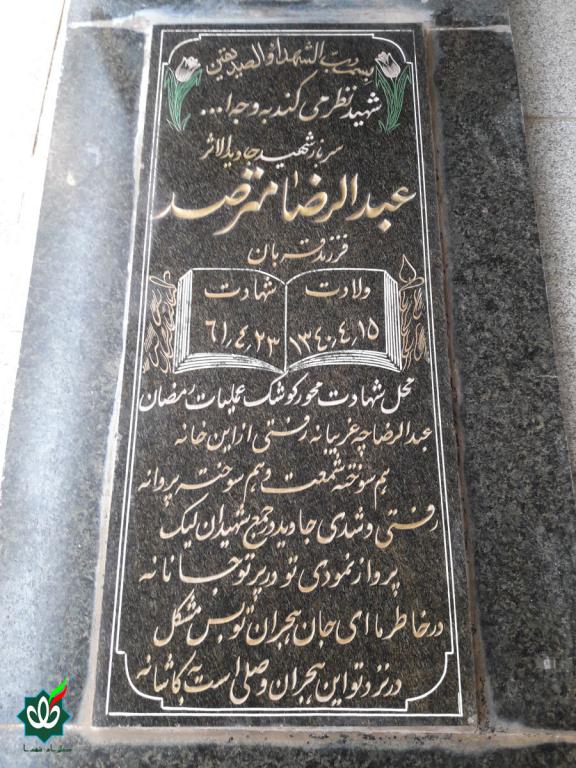 بسم رب الشهداء و الصدیقین
شهید نظر می کند به وجه ا...
سرباز شهید جاویدالاثر
عبدالرضا ممرصد
فرزند قربان
ولادت
شهادت
۱۳۴۰٫۴٫۱۵
۶۱٫۴٫۲۳
محل شهادت محور کوشک عملیات رمضان
عبدالرضا چه غریبانه رفتی از این خانه
هم سوخته شمعت و هم سوخته پروانه
رفتی و شدی جاوید در جمع شهیدان لیک
پرواز نمودی تو در پرتو جانانه
در خاطر ما ای جان هجران تو بس مشکل
در نزد تو این هجران وصلی است به کاشانه